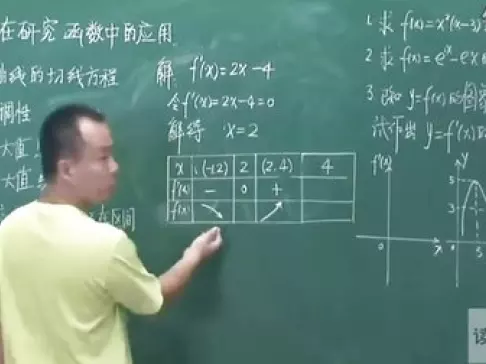 在研究函数中的应用
线的切线方程
调性
大值
大值
在区间
解 f'(x)=2x-4
令f'(x)=2x-4=0
解得 x=2
x (-1,2) 2 (2,4) 4
f'(x) - 0 +
f(x) ↘ ↗
1. 求 f(x)=x²(x-3)
2. 求 f(x)=eˣ-ex
3. y=f(x)的图象
试作出 y=f'(x)
f'(x)
0 x
y
5
3
0